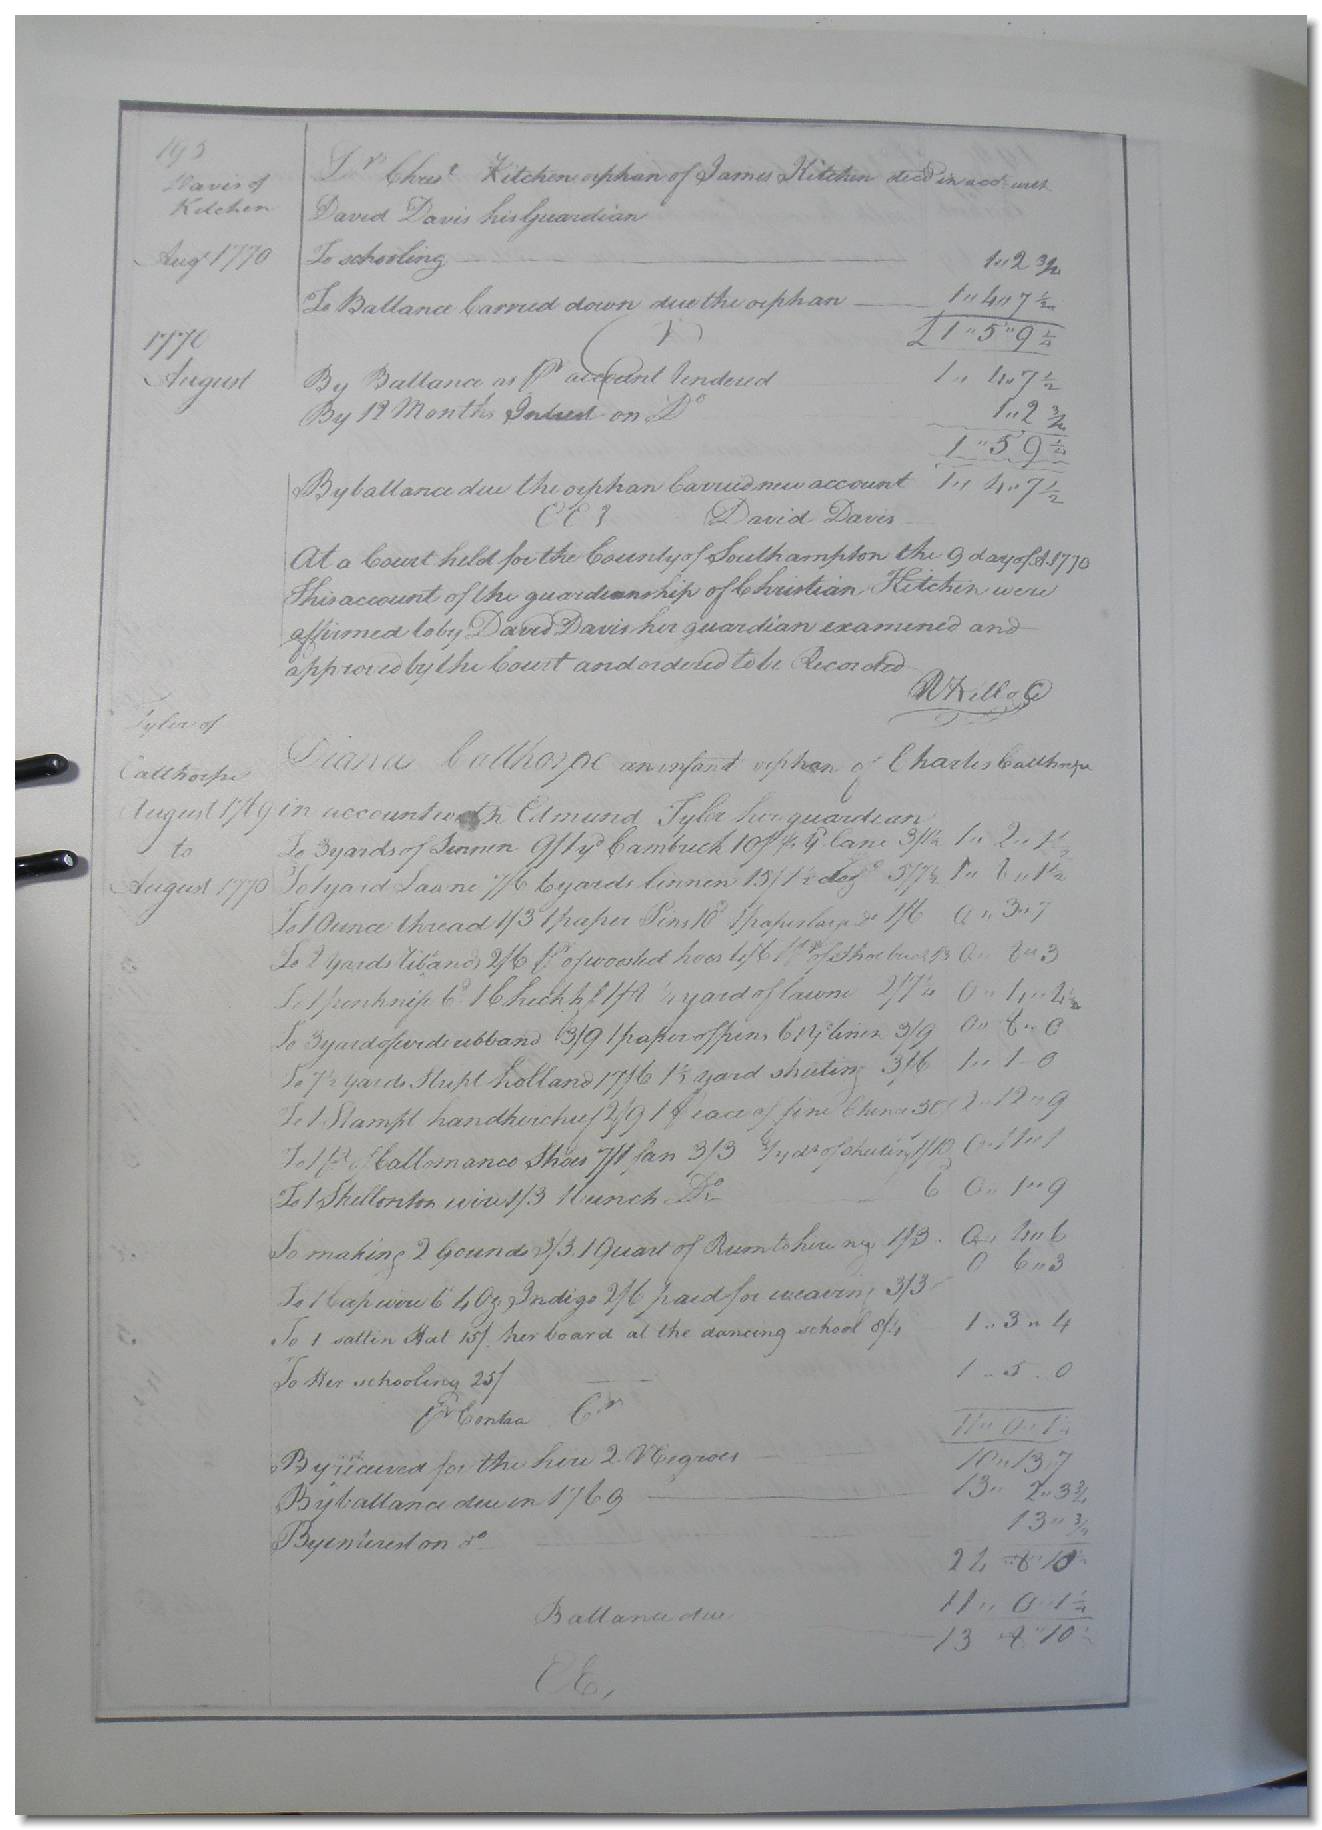 193
Davis of
Kitchen
Drs Christ Kitchen orphan of James Kitchen decd in acct with
David Davis his Guardian
Augt 1770 To schooling 1"2 3/4
To Ballance Carried down due the orphan 1"4"7 1/2
£1"5"9 1/4
1770
August By Ballance as Pr account rendered 1"4"7 1/2
By 12 Months Intrest on Do 1"2 3/4
1"5"9 1/4
By ballance due the orphan Carried new account 1"4"7 1/2
David Davis
At a Court held for the County of Southampton the 9 day of A. 1770
This account of the guardianship of Christian Kitchen were
affirmed to by David Davis her guardian examined and
approved by the Court and ordered to be Recorded
Tyler of
Calthorpe
Diana Calthorpe an infant orphan of Charles Calthorpe
August 1769 in account with Edmund Tyler her guardian
to To 3 yards of Linnen 9/ 1 yd Cambrick 10/ lane 3/1½ 1"2"1½
August 1770 To 1 yard Laane 7/6 6 yards linnen 15/1½ 5/7½
To 1 Ounce thread 1/3 1 paper Pins 10d 1 paper 1/6 0"3"7
To 2 yards 2/6 1 pr of woosted hoos 4/6 1 pr of Shoe 0"8"3
To 1 penknife 6d 1 Check yard of lawne 2/7½ 0"4"
To 3 yard of wide ribband 3/9 1 paper of pins 6 1 yd linen 3/9 0"8"0
To 7½ yards Stript holland 17/6 1½ yard sheeting 3/6 1"1-0
To 1 Stampt handkerchief 2/9 1 Peace of fine Chince 50/ 2"12"9
To 1 pr of Callomanco Shoes 7/1 fan 3/3 yds of sheeting 1/10
To 1 wire 1/3 1 bunch Do 6d 0"1"9
To making 2 Gounds 3/3. 1 Quart of Rum to hire neg 1/3. 0"4"6
To 1 Cap wire 6d 4 Oz Indigo 2/6 paid for weaving 3/3 0 6"3
To 1 sattin Hat 15/. her board at the dancing school 8/4 1"3"4
To Her schooling 25/ 1"5"0
Pr Contra Cr
11"0"1¼
By received for the hire 2 Negroes 10"13"7
By ballance due in 1769 13"2"3¾
By interest on do 13"¾
24"8"10½
11"0"1¼
Ballance due 13"8"10½